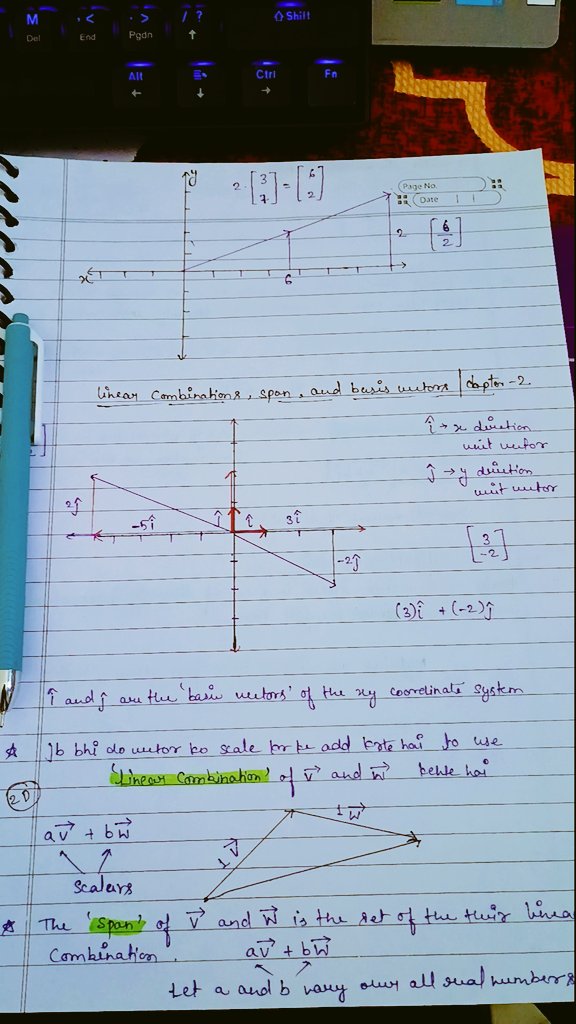 M
Del
, <
End
. >
Pgdn
/ ?
↑
⇧ Shift
Alt
←
↓
Ctrl
→
Fn
y
2 · [3 7] = [6 2]
Page No.
Date
x
6
2
[6 2]
linear combinations, span, and basis vectors | chapter-2
î → x direction
unit vector
ĵ → y direction
unit vector
2ĵ
-5î
ĵ
î
3î
-2ĵ
[3 -2]
(3)î + (-2)ĵ
î and ĵ are the 'basis vectors' of the xy coordinate system
☆ Jb bhi do vector ko scale kr ke add krte hai to use
'Linear Combination' of v⃗ and w⃗ kehte hai
2D
av⃗ + bw⃗
scalars
1v⃗
1w⃗
☆ The 'span' of v⃗ and w⃗ is the set of the their linea
Combination.
av⃗ + bw⃗
Let a and b vary over all real numbers